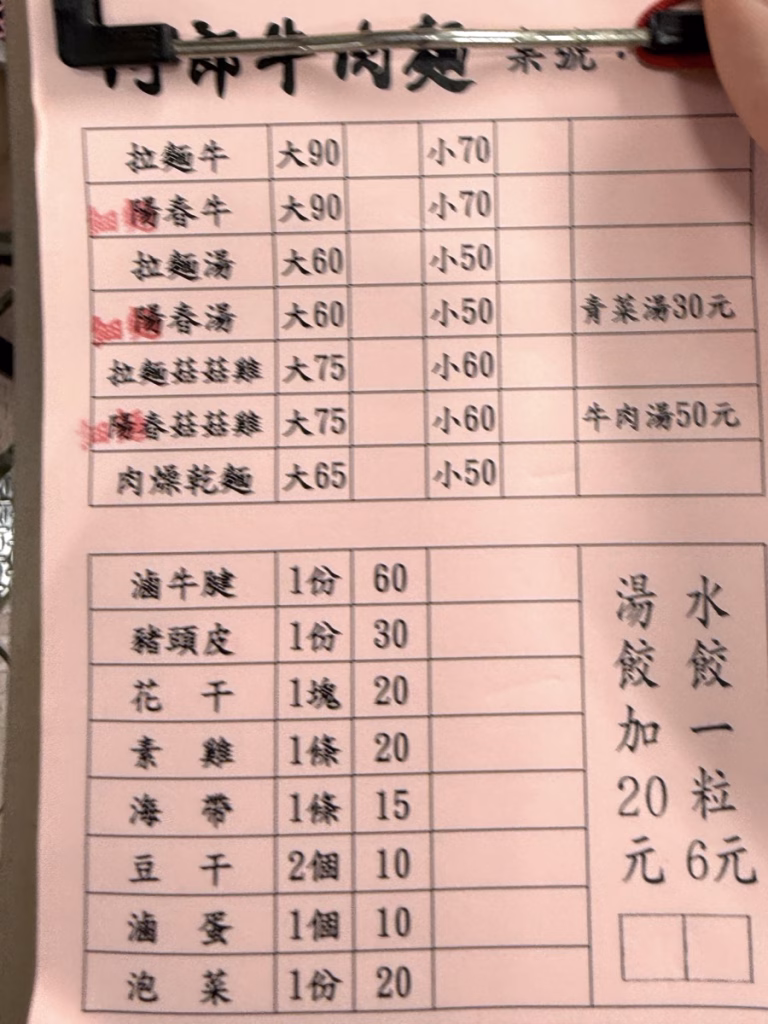 牛肉麵 桌號.
拉麵牛 大90 小70
陽春牛 大90 小70
拉麵湯 大60 小50
陽春湯 大60 小50 青菜湯30元
拉麵菇菇雞 大75 小60
陽春菇菇雞 大75 小60 牛肉湯50元
肉燥乾麵 大65 小50
滷牛腱 1份 60
豬頭皮 1份 30
花干 1塊 20
素雞 1條 20
海帶 1條 15
豆干 2個 10
滷蛋 1個 10
泡菜 1份 20
水餃一粒6元
湯餃加20元